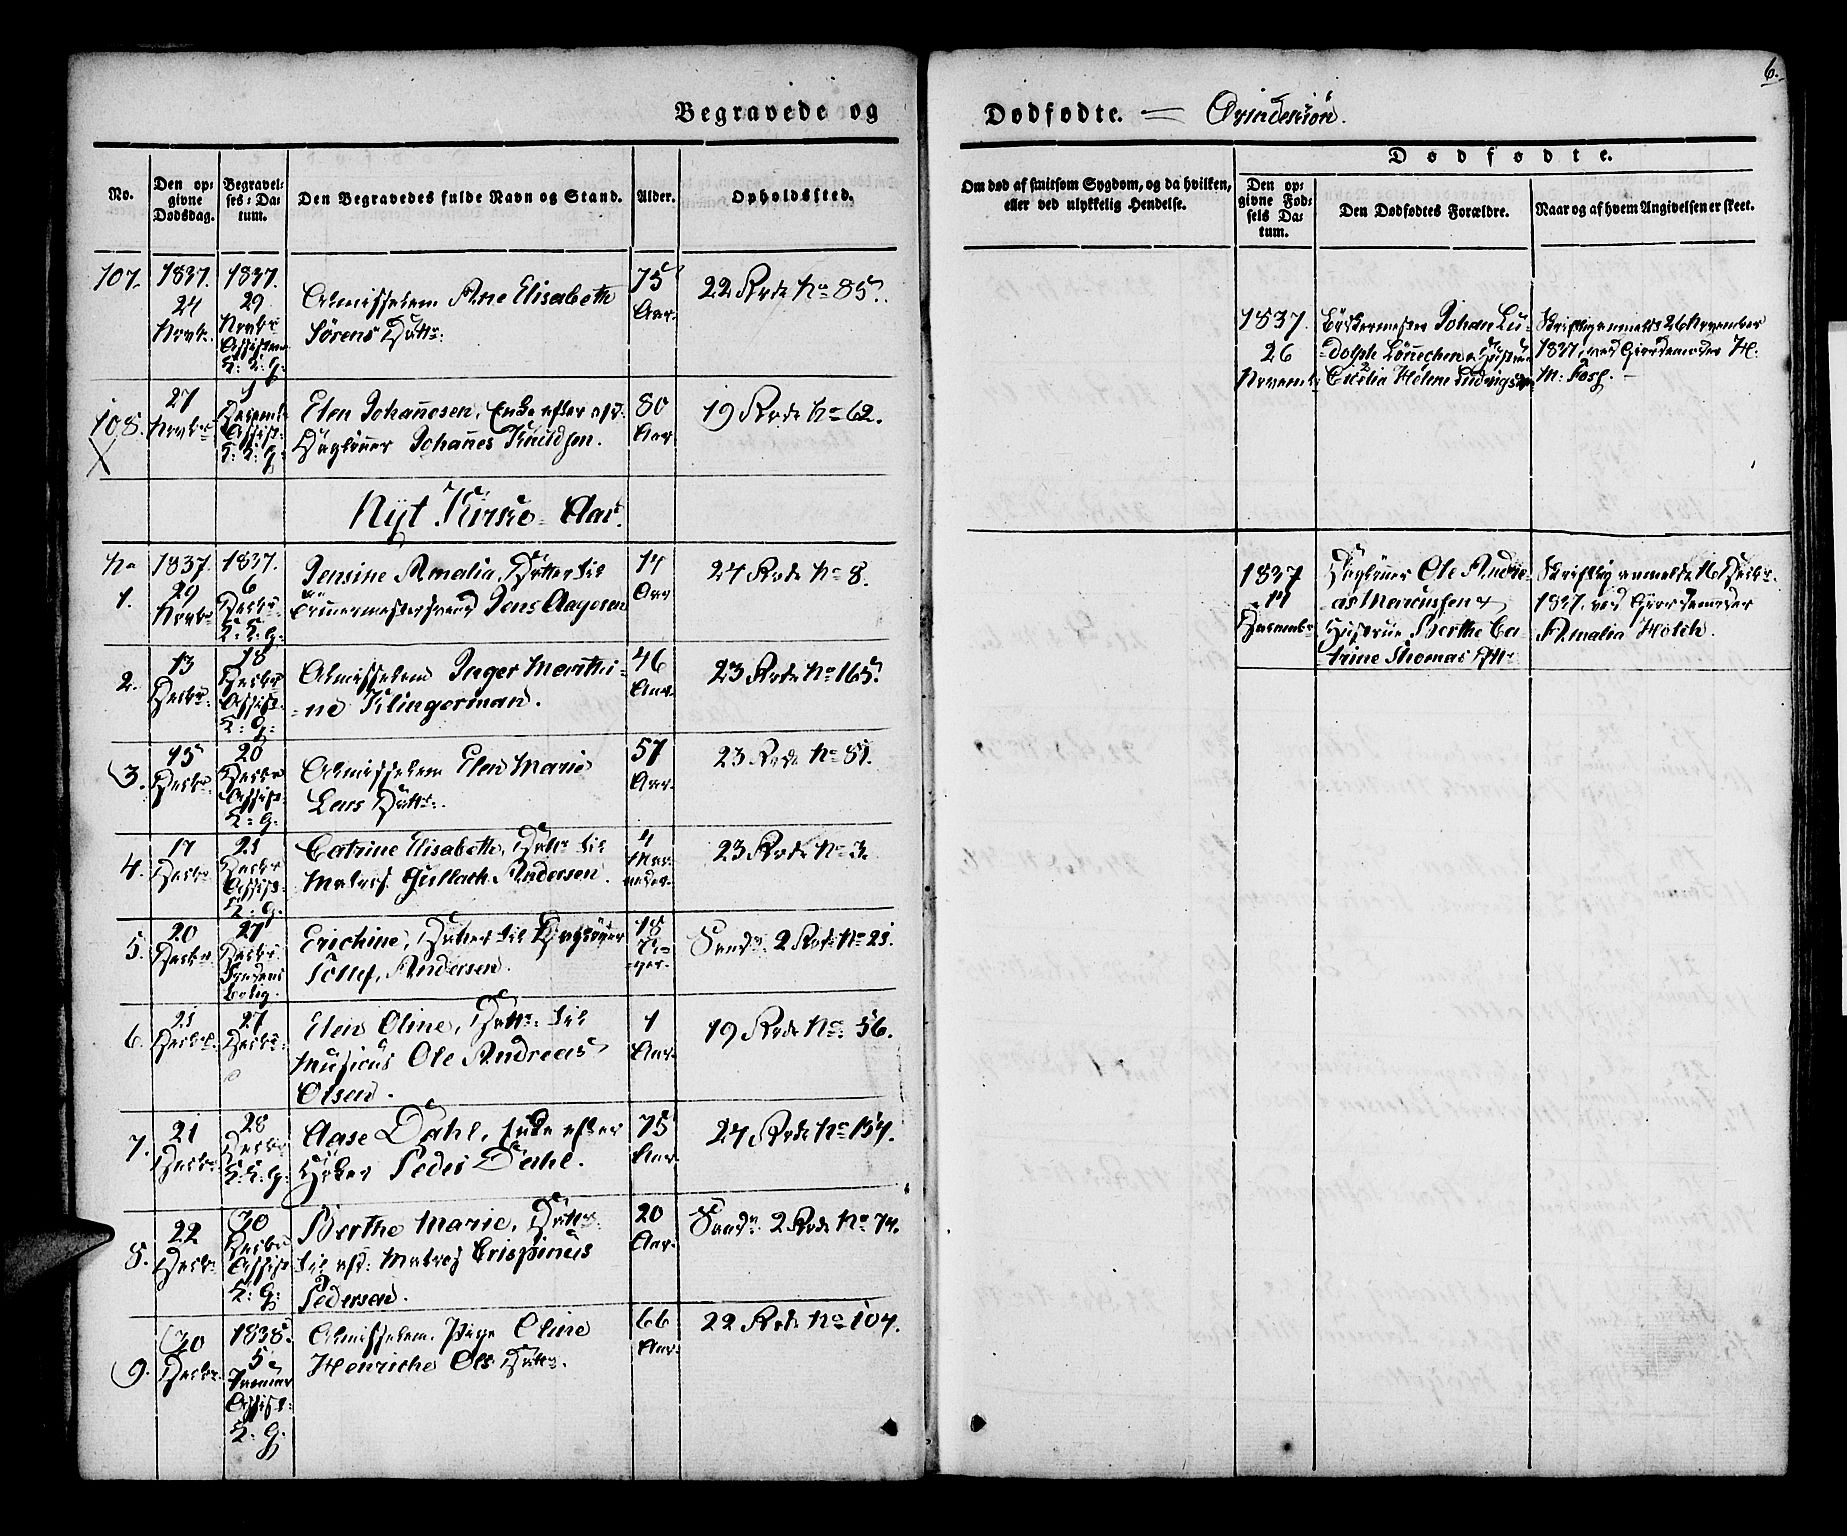 6.
Begravede og
Dodfodte. = Qvindekiøn.
No.
Den opgivne Dodsdag.
Begravelses-Datum.
Den Begravedes fulde Navn og Stand.
Alder.
Opholdssted.
Om død af smitsom Sygdom, og da hvilken,
eller ved ulykkelig Hendelse.
Dødfødte.
Den opgivne Fødsels Datum.
Den Dodfodtes Forældre.
Naar og af hvem Angivelsen er skeet.
107. 1837. 1837. 75
24 29 Almisselem Ane Elisabeth Aar. 22 Rode No 85.
Novbr. Novbr Sørens Dattr:
Assistens
K: G:
108. 27 1 Elen Johannesen, Enke efter afd: 80 19 Rode No 62.
Novbr Decemb Dagleiier Johannes Knudsen. Aar
Assist:
K: G:
Nyt Kirke-Aar.
No 1837. 1837. Jensine Amalia, Datter til 14 24 Rode No 8.
1. 29 6 Tømmermestersvend Jens Aagesen Aar
Novbr Decbr
K: G:
2. 13 18 Almisselem Inger Merthi- 46 23 Rode No 165.
Decbr. Decbr =ne Klingerman. Aar.
Assist:
K: G:
3. 15 20 Almisselem Elen Marie 57 23 Rode No 81.
Decbr. Decbr Lars Dattr: Aar.
Assist:
K: G:
4. 17 21 Catrine Elisabeth, Dattr til 4 23 Rode No 3.
Decbr Decbr Matros Gullach Andersen. Maaneder.
Assist:
K: G:
5. 20 27 Erichine, Datter til Dagleiier 18 Sandv. 2 Rode No 21.
Decbr. Decbr Tollef Andersen. Dager.
6. 21 27 Elen Oline, Dattr: til 1 19 Rode No: 56.
Decbr. Decbr: Musicus Ole Andreas Aar.
Olsen.
7. 21 28 Aase Dahl, Enke efter 75 24 Rode No 154.
Decbr Decbr Høker Peder Dahl. Aar.
K: G:
8. 22 30 Berthe Marie, Dattr. 20 Sandv. 2 Rode No 74.
Decbr. Decbr til afd: Matros Crispinus Aar.
Assist Pedersen.
K: G:
9. 30 1838. Almisselem. Oline 66 22 Rode No 104.
Decbr. 5 Henriche Ols Dattr. Aar.
Januar
Assist:
K: G.
1837. Bødkermester Johan Lu- Skriftlig anmeldt 26 November
26 =dolph Lönnechen & Hustrue 1837, ved Giordemoder H:
Novemb. Cicilia Helene Ludvigsen M: Foss. —
1837 Dagleiier Ole Andre- Skriftlig anmeldt 16 Decbr.
14 as Marcussen & 1837. ved Giordemoder
Decemb. Hustrue Berthe Ca- Amalia Holch.
trine Thomas Dttr